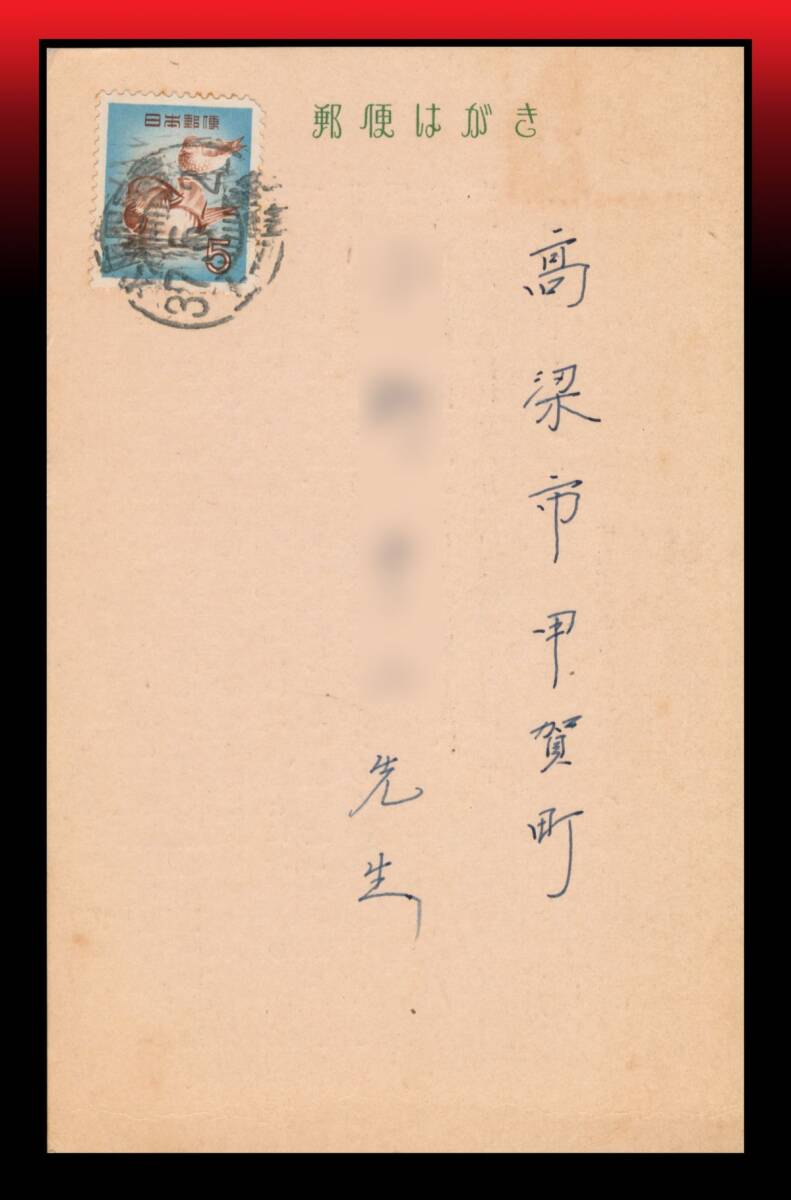 郵便はがき
日本郵便
5
高梁市甲賀町
先生